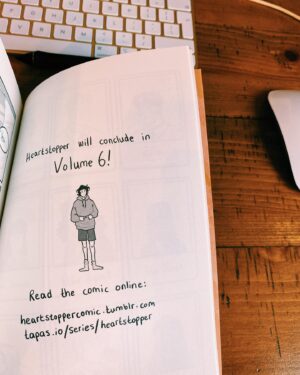 Heartstopper will conclude in
Volume 6!
Read the comic online:
heartstoppercomic.tumblr.com
tapas.io/series/heartstopper